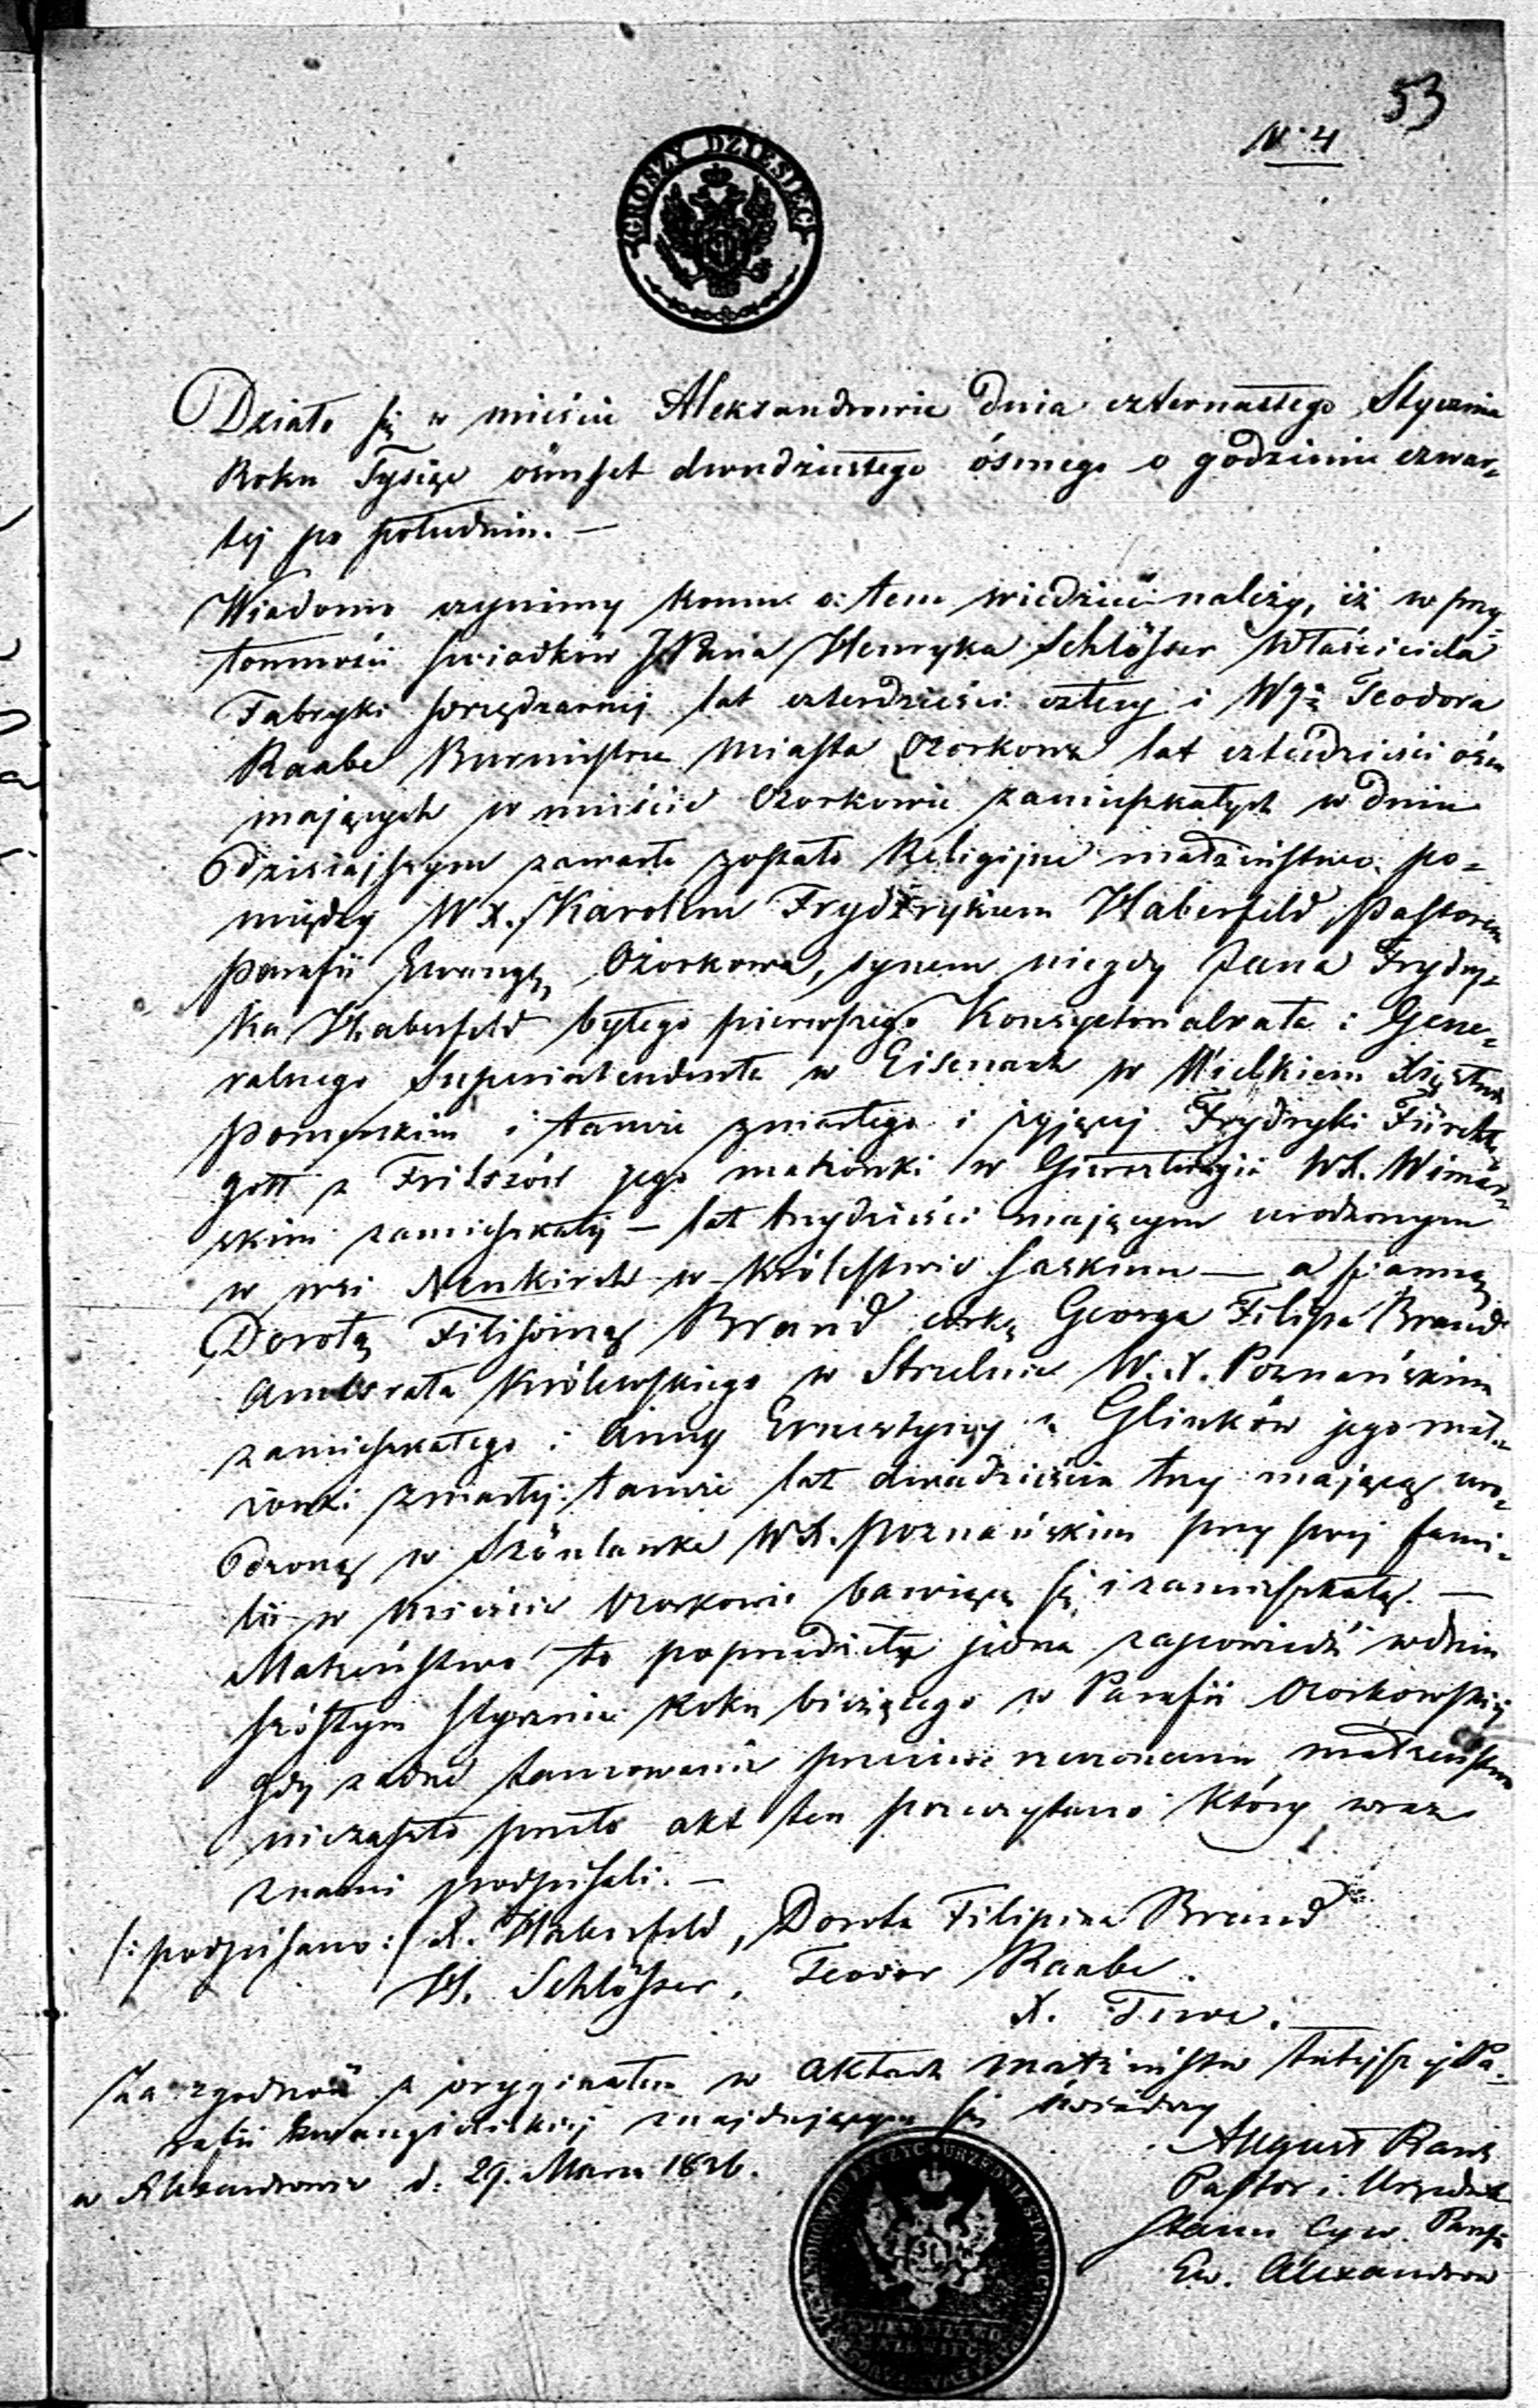 53
N. 4
GROSZY DZIESIĘĆ
Działo się w mieście Aleksandrowie dnia czternastego Stycznia
Roku Tysiąc ośmset dwudziestego ósmego o godzinie czwar-
tej po południu. —
Wiadomo czynimy komu o tem wiedzieć należy, iż w przy-
tomności świadków JPana Henryka Schlösser Właściciela
Fabryki lat czterdzieści cztery i Wgo Teodora
Raabe Burmistrza Miasta Ozorkowa lat czterdzieści ośm
mających w mieście Ozorkowie zamieszkałych w dniu
dzisiajszym zawarte zostało Religijne małżeństwo po-
między WX. Karolem Frydrykiem Haberfeld, Pastorem
Parafii Ewangel, Ozorkowa, synem niegdy Jana Frydry-
ka Haberfeld byłego pierwszego Konsystorialrata i Gene-
ralnego Superintendenta w Eisenach w Wielkiem Xięstwie
i tamże zmarłego i żyjącej Frydryki Fürchte-
gott z jego małżonki w WX. Wimar-
skim zamieszkałej — lat trzydzieści mającym urodzonym
w wsi Neukirch w Królestwie Saskim — a panną
Dorotą Filipiną Brand córką George Filipa Brand
Amtsrata Królewskiego w Strzelnie W. X. Poznańskim
zamieszkałego i Anny Ernestyny z Glinków jego mał-
żonki zmarłej tamże lat dwadzieścia trzy mającą uro-
dzoną w Szönlanke WX. Poznańskim przy swej fami-
lii w mieście Ozorkowie bawiącą się i zamieszkałą. —
Małżeństwo to poprzedziła jedna zapowiedź w dniu
szóstym stycznia Roku bieżącego w Parafii Ozorkowskiej
gdy żadne tamowanie przeciw rzeczonemu małżeństwu
niezaszło przeto akt ten przeczytano który wraz
z nami podpisali. —
/: podpisano :/ X. Haberfeld, Dorota Filipina Brand
H. Schlösser, Teodor Raabe.
X. Tuve. —
Za zgodność z oryginałem w Aktach małżeństw tutejszej Pa-
rafii Ewangielickiej znajdującym się świadczy
w Alexandrowie d. 29. Marca 1826.
August
Pastor i Urzędnik
Stanu Cyw. Paraf:
Ew. Alexandrow